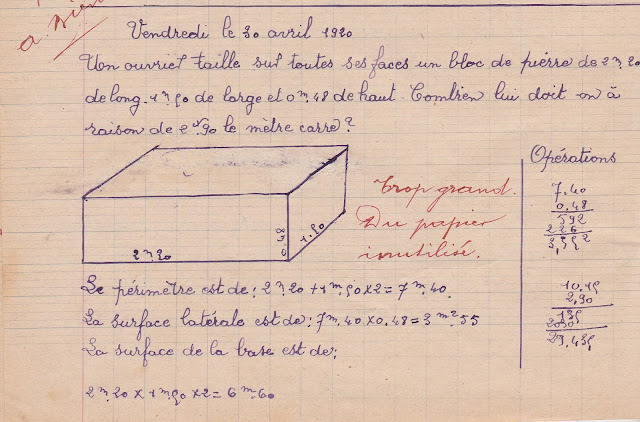 Vendredi le 30 avril 1920
Un ouvrier taille sur toutes ses faces un bloc de pierre de 2m.20
de long. 1m.50 de large et 0m.48 de haut. Combien lui doit on à
raison de 2f.90 le mètre carré?
Opérations
7.40
0.48
592
296
3,552
Trop grand.
Du papier
inutilisé.
2m20
0m48
1.50
Le périmètre est de: 2m.20 + 1m.50 x 2 = 7m.40.
La surface latérale est de: 7m.40 x 0.48 = 3m².55
La surface de la base est de:
2m.20 x 1m.50 x 2 = 6m.60
10.15
2,90
2030
29.435